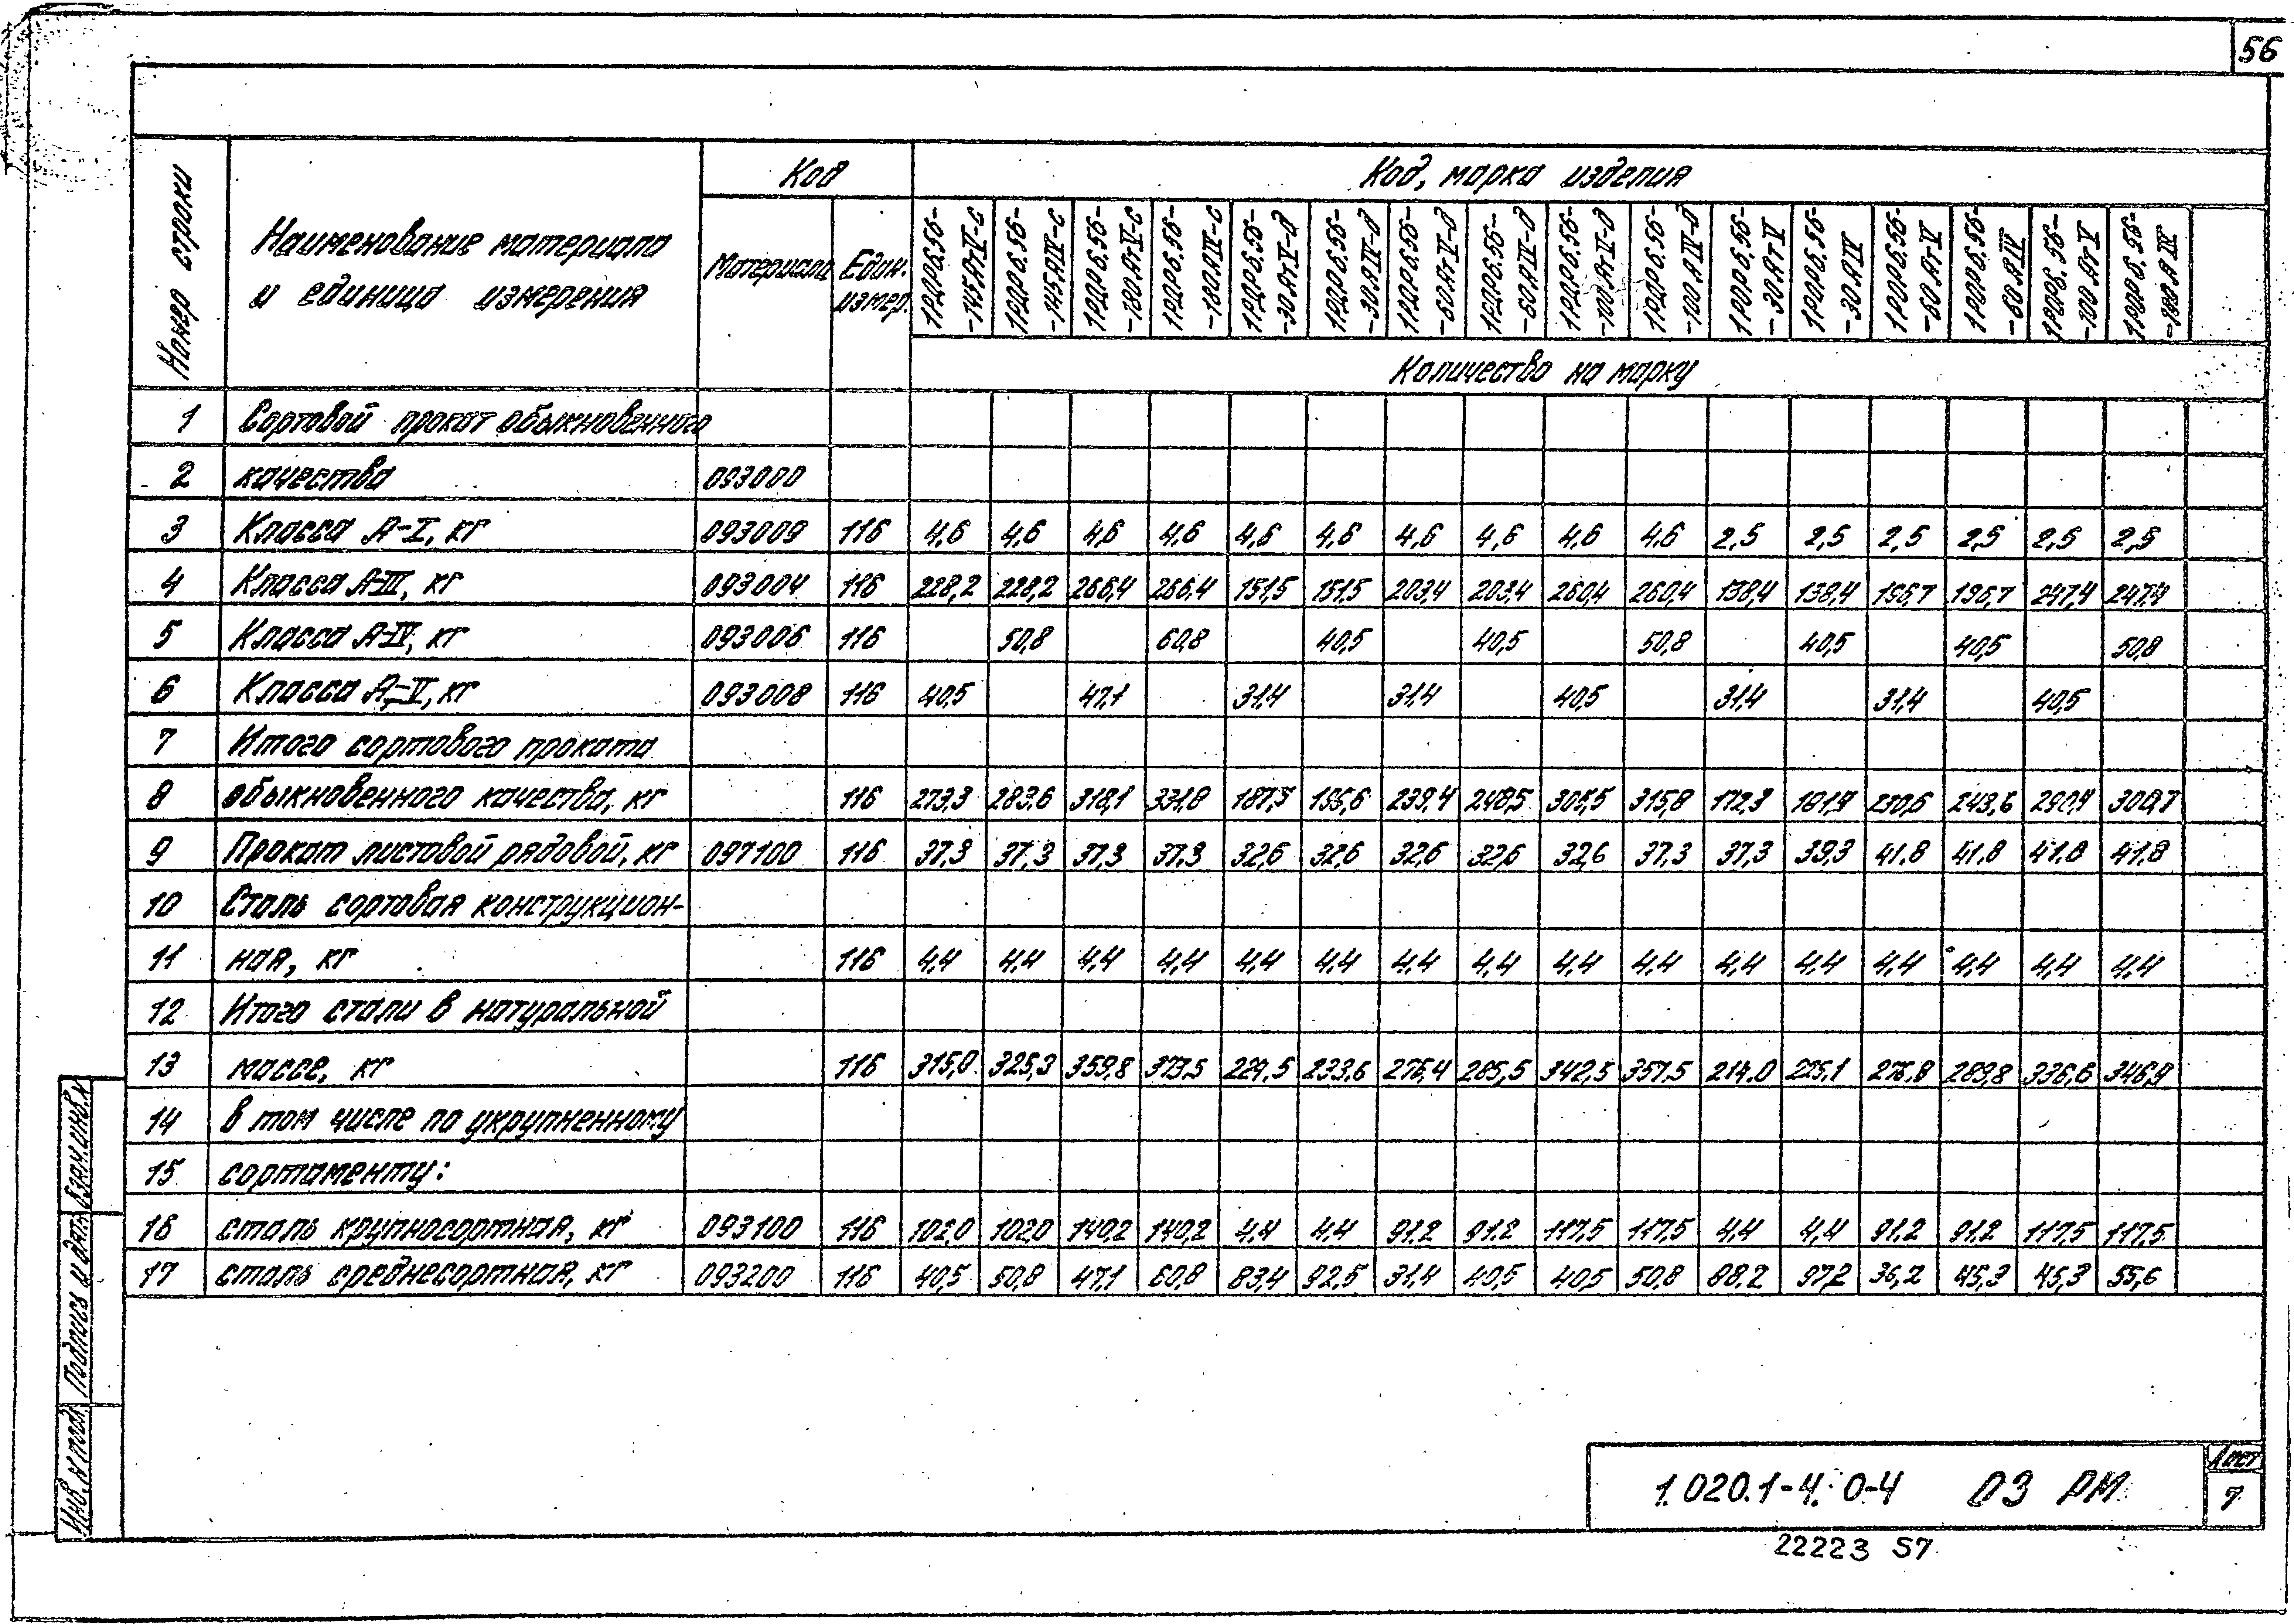 56
Номер строки
Наименование материала и единица измерения
Код
Материала
Един. измер.
Код, марка изделия
1РДР6.56-145АтV-с
1РДР6.56-145АIV-с
1РДР6.56-180АтV-с
1РДР6.56-180АIV-с
1РДР6.56-30АтV-д
1РДР6.56-30АIV-д
1РДР6.56-60АтV-д
1РДР6.56-60АIV-д
1РДР6.56-100АтV-д
1РДР6.56-100АIV-д
1РОР6.56-30АтV
1РОР6.56-30АIV
1РОР6.56-60АтV
1РОР6.56-60АIV
1РОР6.56-100АтV
1РОР6.56-100АIV
Количество на марку
1 Сортовой прокат обыкновенного
2 качества 093000
3 Класса А-I, кг 093009 116 4,6 4,6 4,6 4,6 4,6 4,6 4,6 4,6 4,6 4,6 2,5 2,5 2,5 2,5 2,5 2,5
4 Класса А-III, кг 093004 116 228,2 228,2 266,4 266,4 151,5 151,5 203,4 203,4 260,4 260,4 138,4 138,4 196,7 196,7 247,4 247,4
5 Класса А-IV, кг 093006 116 50,8 60,8 40,5 40,5 50,8 40,5 40,5 50,8
6 Класса Ат-V, кг 093008 116 40,5 47,1 31,4 31,4 40,5 31,4 31,4 40,5
7 Итого сортового проката
8 обыкновенного качества, кг 116 273,3 283,6 318,1 331,8 187,5 196,6 239,4 248,5 305,5 315,8 172,3 181,4 230,6 243,6 290,4 300,7
9 Прокат листовой рядовой, кг 097100 116 37,3 37,3 37,3 37,3 32,6 32,6 32,6 32,6 32,6 37,3 37,3 39,3 41,8 41,8 41,8 41,8
10 Сталь сортовая конструкцион-
11 ная, кг 116 4,4 4,4 4,4 4,4 4,4 4,4 4,4 4,4 4,4 4,4 4,4 4,4 4,4 4,4 4,4 4,4
12 Итого стали в натуральной
13 массе, кг 116 315,0 325,3 359,8 373,5 224,5 233,6 276,4 285,5 342,5 357,5 214,0 225,1 276,8 289,8 336,6 346,9
14 в том числе по укрупненному
15 сортаменту:
16 сталь крупносортная, кг 093100 116 102,0 102,0 140,2 140,2 4,4 4,4 91,2 91,2 117,5 117,5 4,4 4,4 91,2 91,2 117,5 117,5
17 сталь среднесортная, кг 093200 116 40,5 50,8 47,1 60,8 83,4 92,5 31,4 40,5 40,5 50,8 88,2 97,2 36,2 45,3 45,3 55,6
Взам.инв.N
Подпись и дата
Инв.N подл.
1.020.1-4. 0-4 03 РМ
Лист
7
22223 57